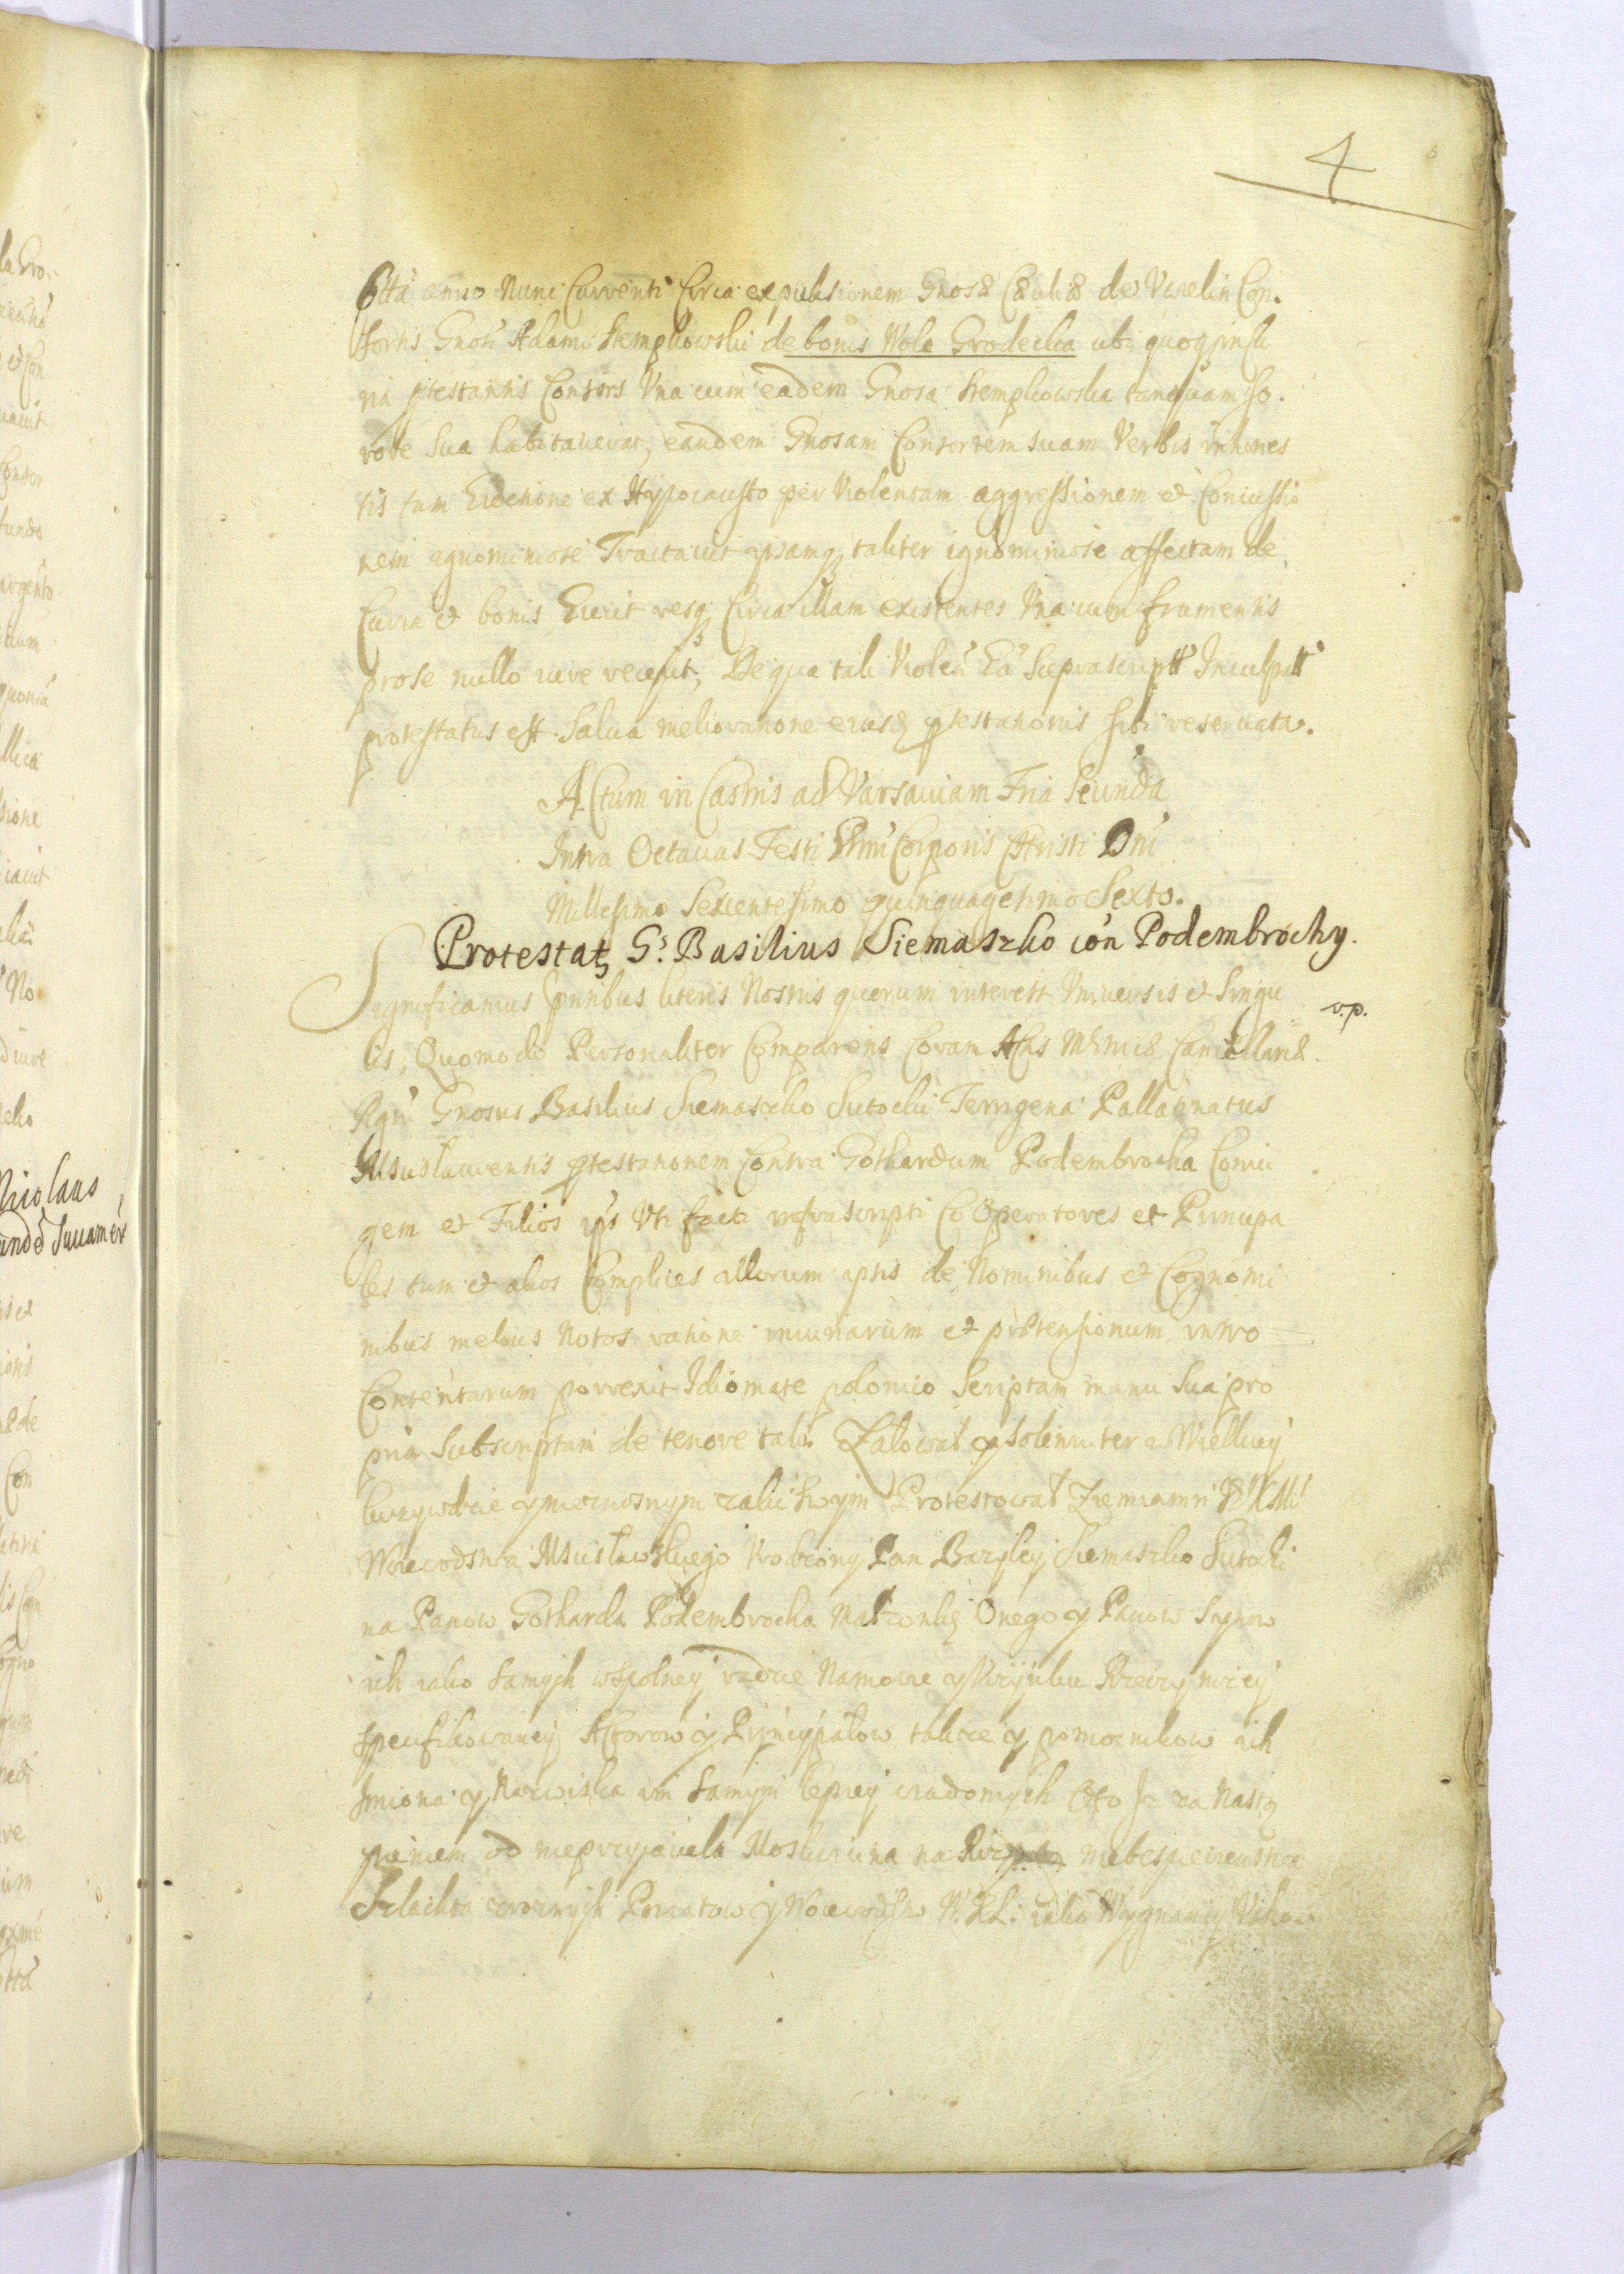 4
anno Nunc Currenti Circa expulsionem Gnosæ Cæciliæ de Con.
sortis Gnosi Adami Stempkowski de bonis Wola Grodecka ubi quoq in Cu
ria ptestantis Consors Vna cum eadem Gnosa Stempkowska tanquam So.
rore Sua habitauerat, eandem Gnosam Consortem suam Verbis inhones
tis tum Eiectione ex Hypocausto per Violentam aggressionem et Concussio
nem ignominiose Tractauit ipsamq taliter ignominiose affectam de
Curia et bonis Eiecit resq Circa illam existentes Vna cum frumentis
pro se nullo iure recepit, De qua tali Violen
protestatus est. Salua melioratione eiusq ptestationis sibi reseruata.
Actum in Castris ad Varsauiam Fria Secunda
Intra Octauas Festi Corporis Christi Dni
Millesimo Sexcentesimo quinquagesimo Sexto.
Protestat, Gs. Basilius Siemaszko con Podembrochy.
Significamus pntibus literis Nostris quorum interest Vniuersis et Singu
v.p.
lis, Quomodo Personaliter Comparens Coram Actis Cancellariæ
Rgni Gnosus Basilius Siemaszko Sutocki Terrigena Pallatinatus
Mscislauiensis ptestationem Contra Gothardum Podembrocka Coniu
gem et Filios Vti facti infrascripti CoOperatores et Principa
les tum et alios Complices illorum ipsis de Nominibus et Cognomi
nibus melius Notos ratione iniuriarum et prætensionum intro
Contentarum porrexit Idiomate polonico Scriptam manu Sua pro
pria Subscriptam de tenore tali. Załował y solenniter w Wielkiey
krzywdzie y nieznosnym zalu swym Protestował Ziemianin
Woiewodstwa Mscisławskiego Vrodzony Pan Bazyley Siemaszko Sutocki
na Panow Gotharda Podembrocka Małzonkę Onego y Panow Synow
ich iako samych wspolney radzie Namowie y Vczynku Rzeczy nizey
specifikowaney Actorow y Pryncypałow takze y pomocnikow ich
Imiona y Nazwiska im samym lepiey wiadomych Oto Iz za Nastą
pieniem od nieprzyiaciela Moskwicina na niebespieczenstwo
Szlachta roznych Powiatow y Woiewodstw W.X.L: iako Wygnancy